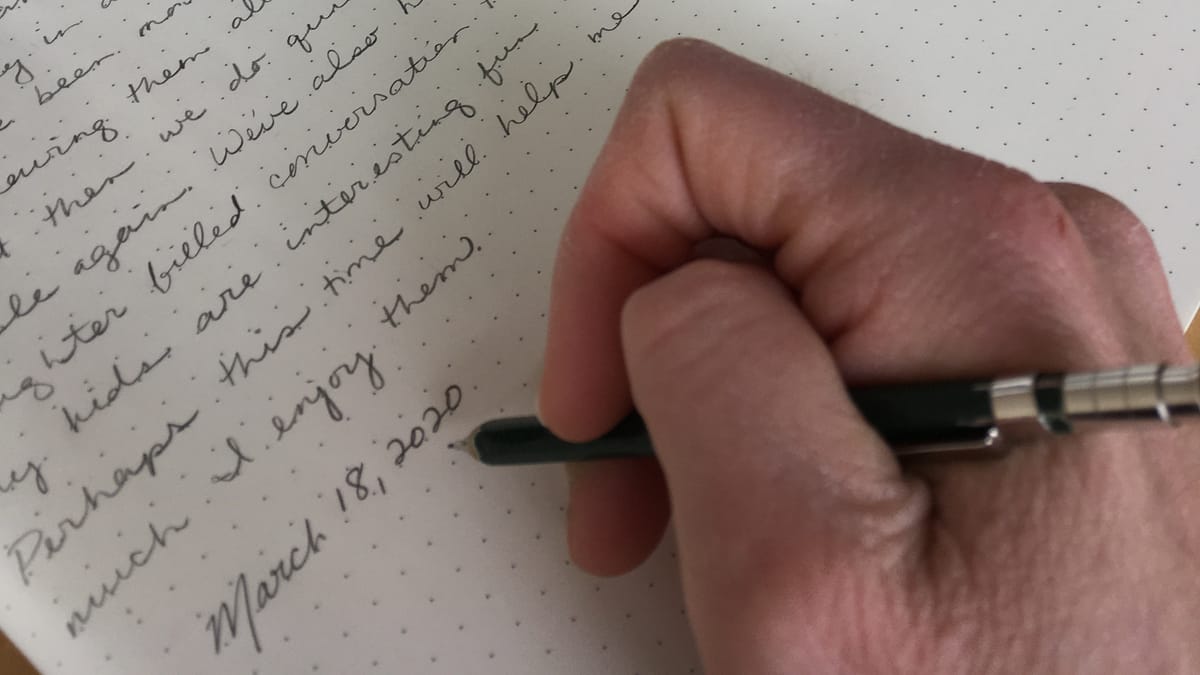 in a
been mo
them al
them we do qui
again. We've also h
filled conversation
kids are interesting fun
Perhaps this time will help me
much I enjoy them.
March 18, 2020